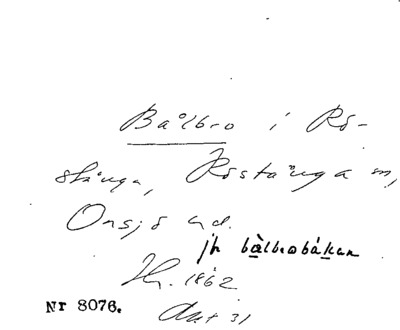 Bålbro i Rö-
stånga, Röstånga sn,
Onsjö hd.
jfr bålbrobákan
Hr. 1862
Akt 31
Nr 8076.